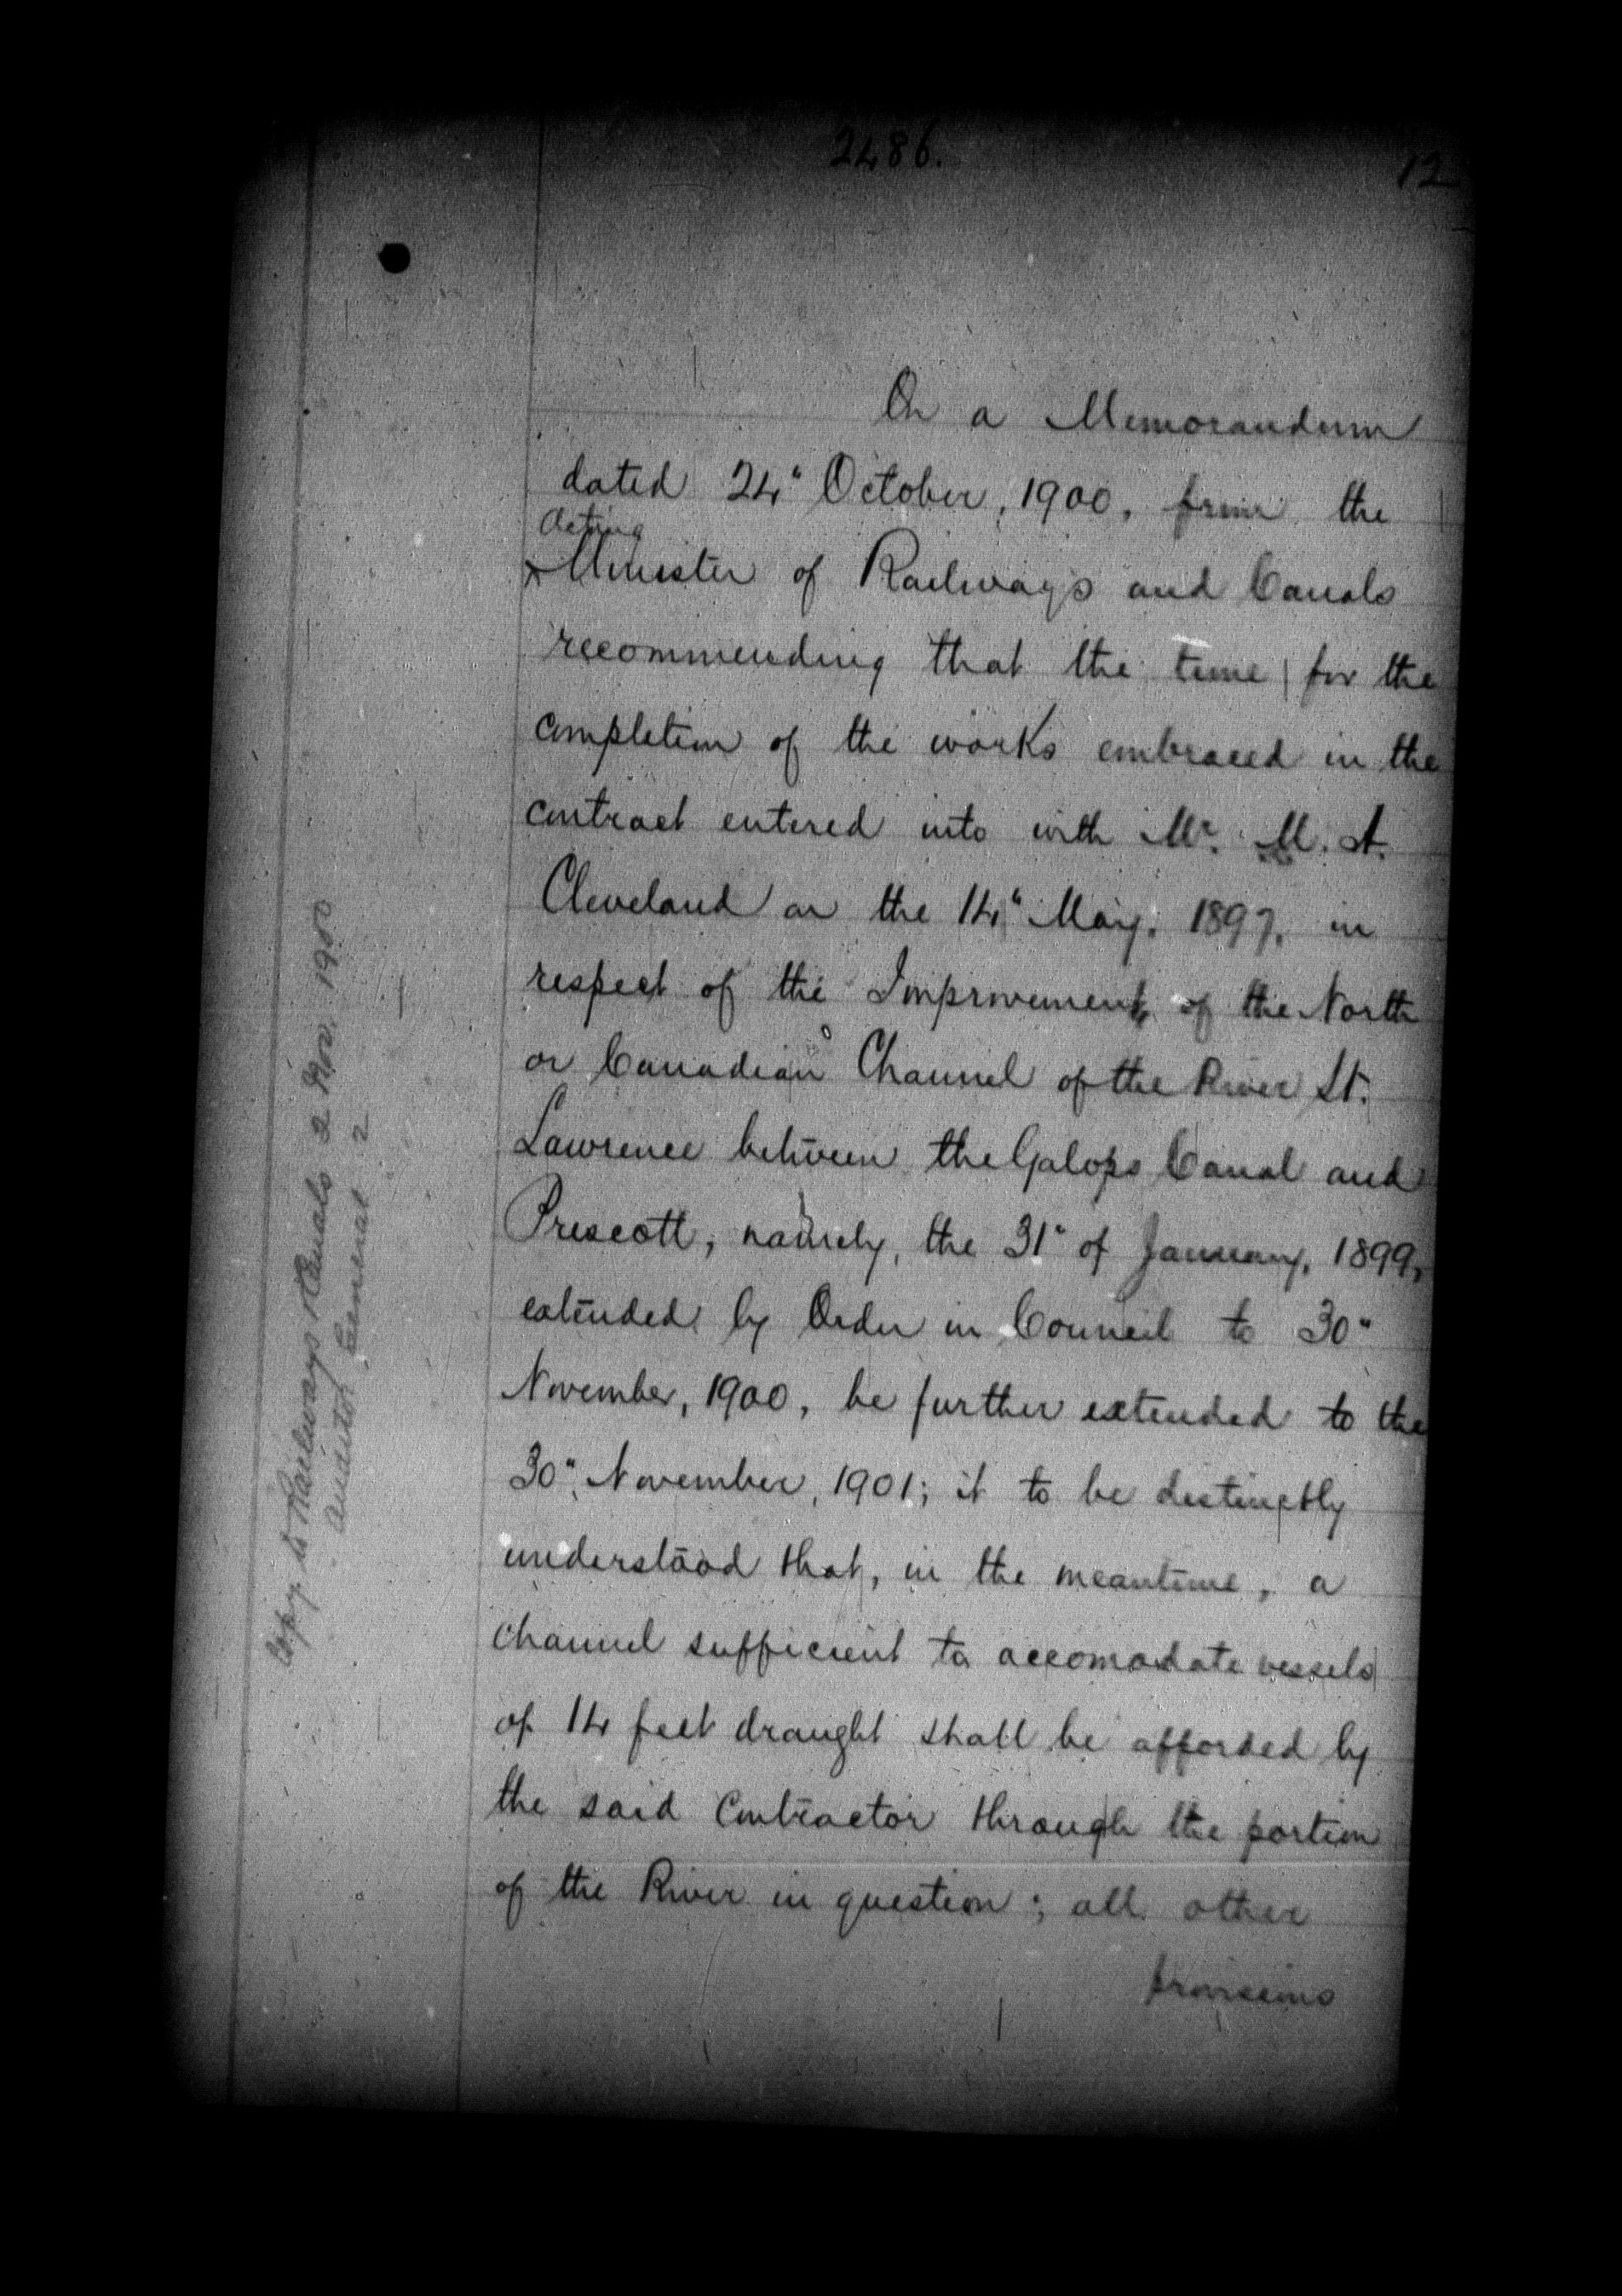 2486.
12
On a Memorandum
dated 24" October, 1900, from the
Acting
Minister of Railways and Canals
recommending that the time for the
completion of the works embraced in the
contract entered into with Mr. M. A.
Cleveland on the 14" May, 1897, in
respect of the Improvement of the North
or Canadian Channel of the River St.
Lawrence between the Galops Canal and
Prescott, namely, the 31" of January, 1899,
extended by Order in Council to 30"
November, 1900, be further extended to the
30" November, 1901; it to be distinctly
understood that, in the meantime, a
channel sufficient to accomodate vessels
of 14 feet draught shall be afforded by
the said Contractor through the portion
of the River in question; all other
provisions
Copy to Railways & Canals 2 Nov. 1900
Auditor General 2